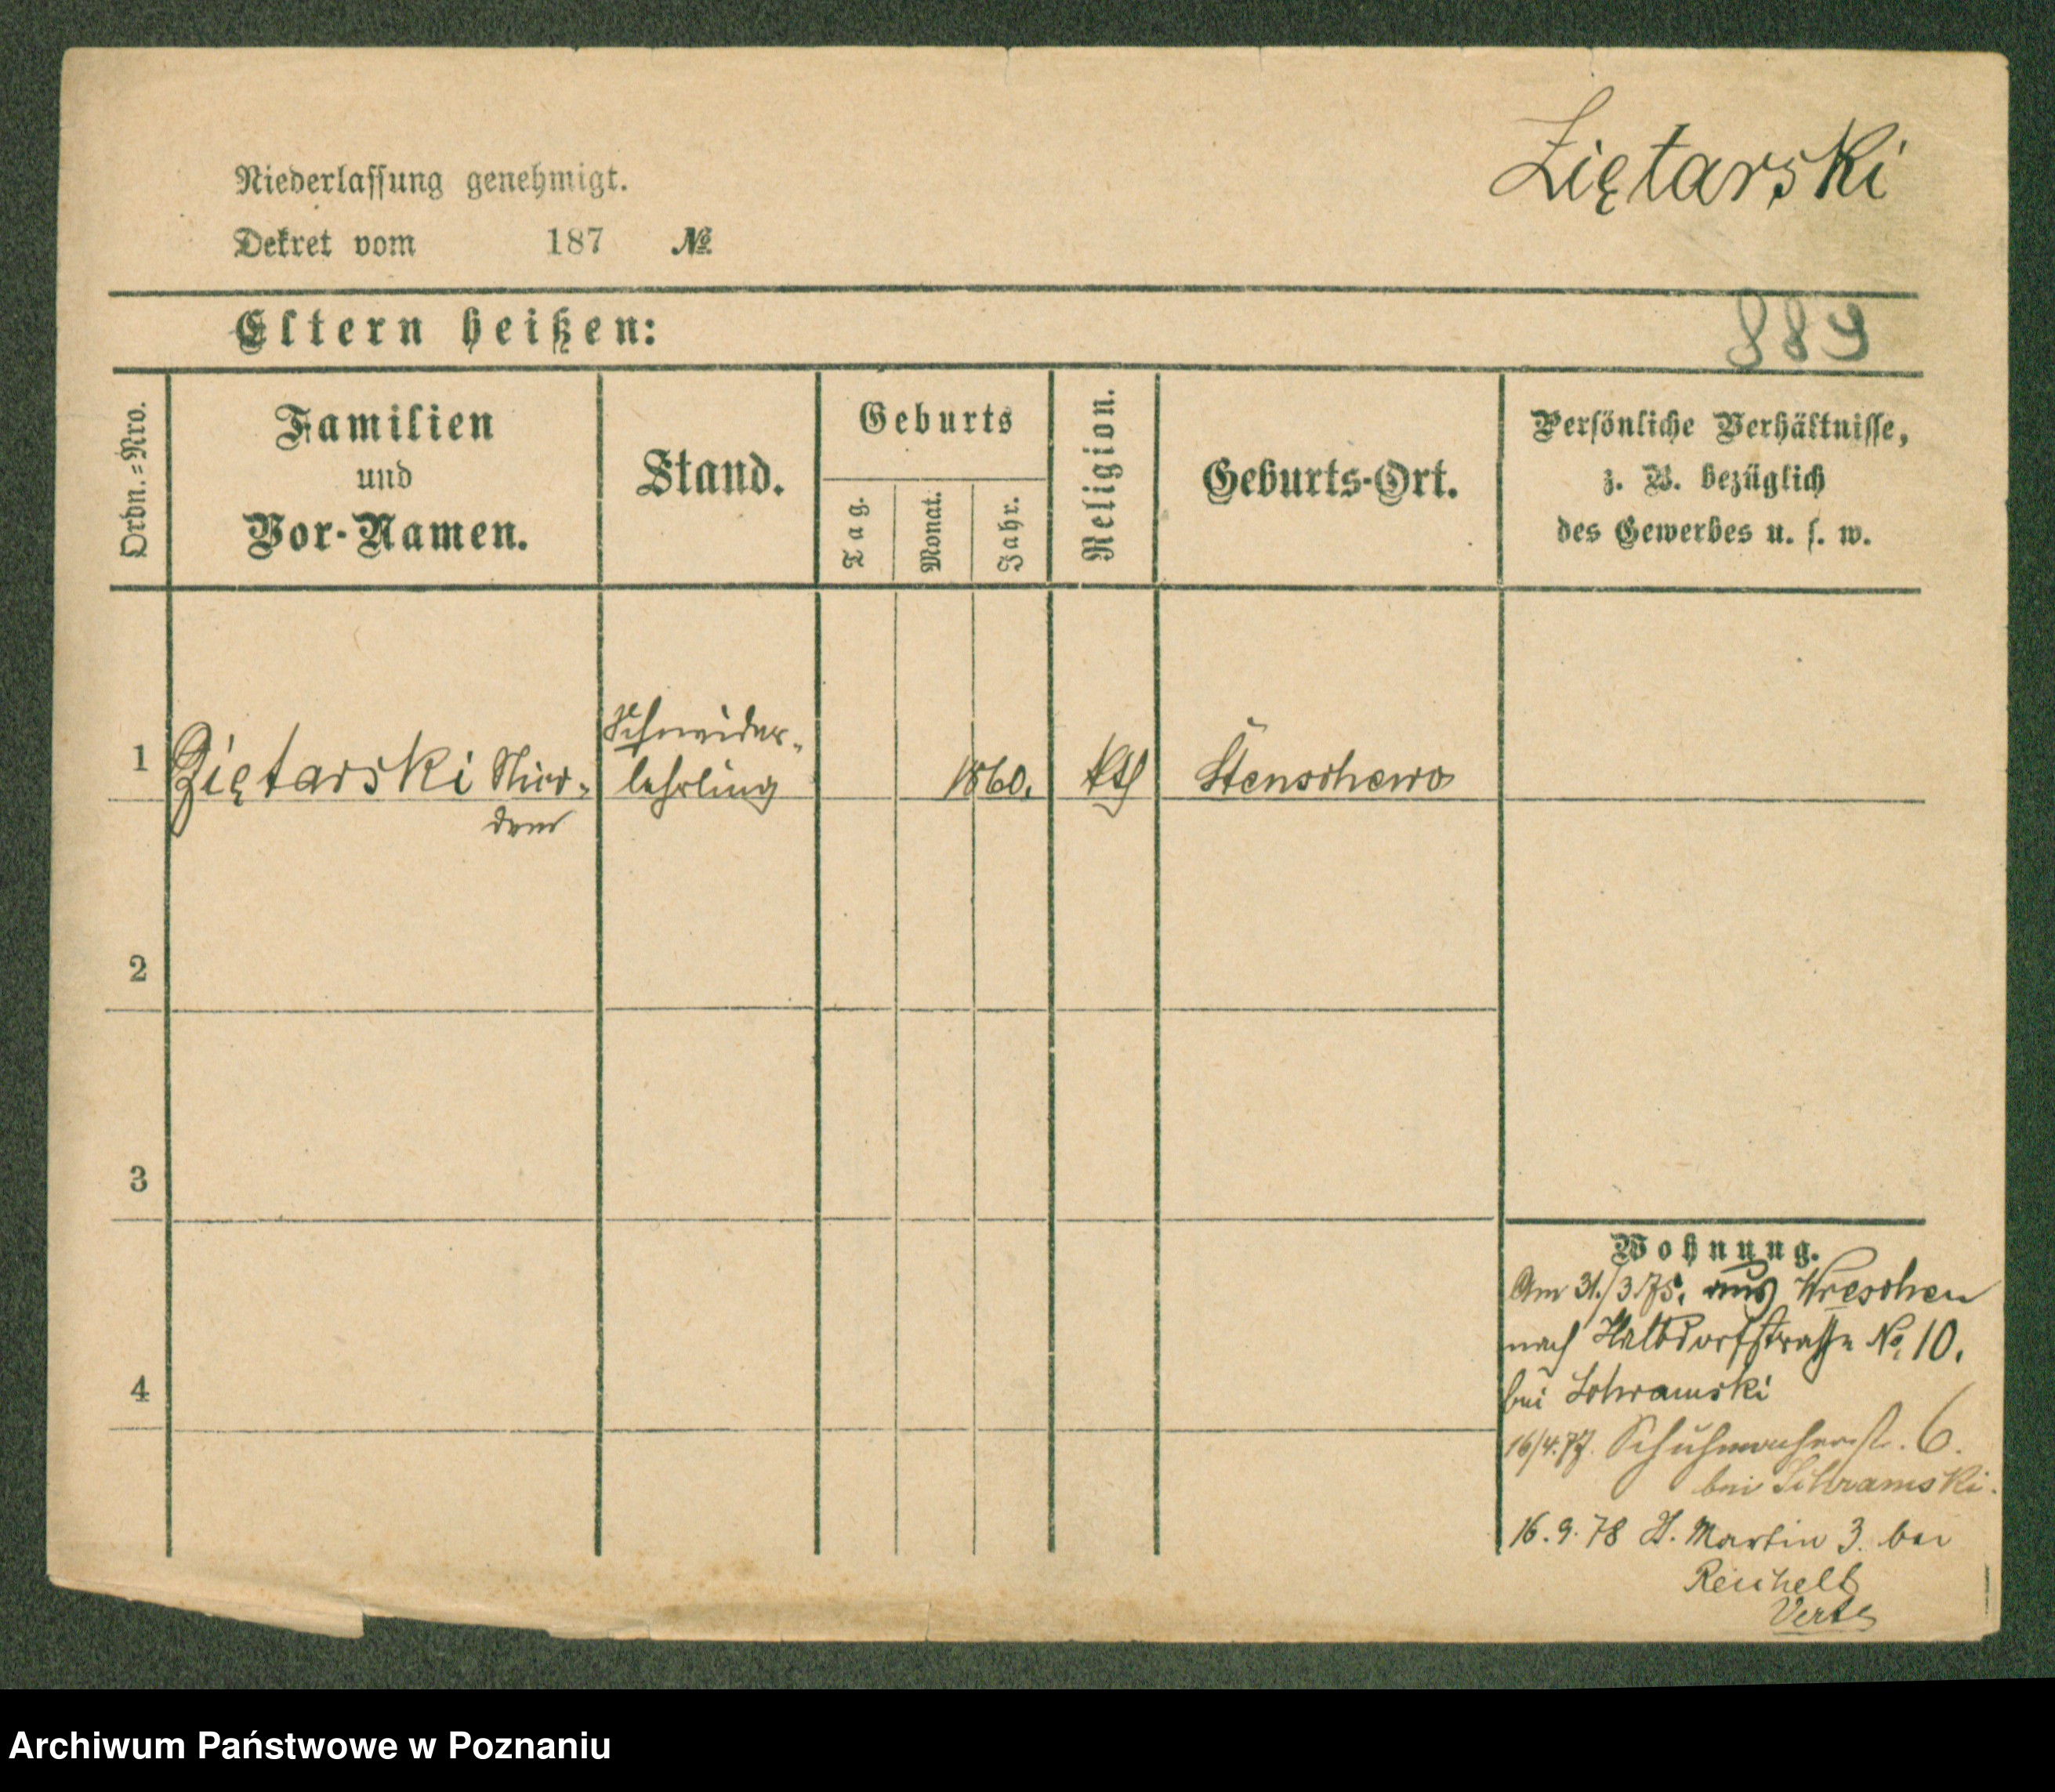 Ziętarski
Niederlassung genehmigt.
Dekret vom 187 №
Eltern heißen:
889
Ordn.=Nro.
Familien
und
Vor-Namen.
Stand.
Geburts
Tag.
Monat.
Jahr.
Religion.
Geburts-Ort.
Persönliche Verhältnisse,
z. B. bezüglich
des Gewerbes u. s. w.
Schneider-
1 Ziętarski 1860. kth Stenschewo
lehrling
2
3
4
Wohnung.
Am 31./3.75. aus Wreschen
nach Halbdorfstrasse No. 10.
bei Schramski
16/4.77. Schuhmacherst. 6.
bei Schramski.
16.9.78 St. Martin 3. bei
Reichelt
Verte
Archiwum Państwowe w Poznaniu